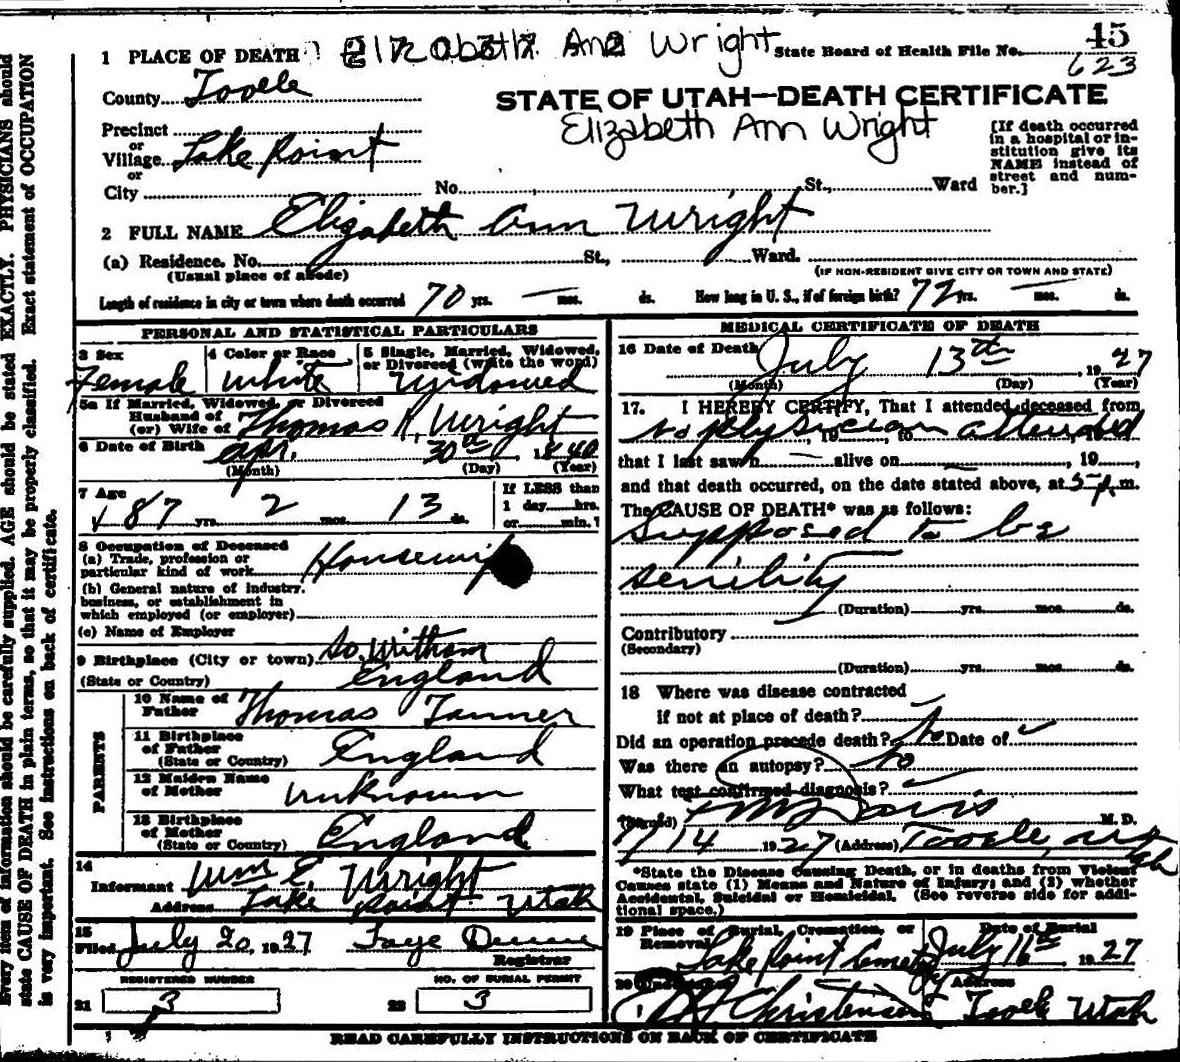 45
1 PLACE OF DEATH Elizabeth Ann Wright State Board of Health File No. 623
County Tooele
STATE OF UTAH—DEATH CERTIFICATE
Elizabeth Ann Wright
Precinct
or
Village Lake Point
or
City No. St., Ward
[If death occurred
in a hospital or in-
stitution give its
NAME instead of
street and num-
ber.]
2 FULL NAME Elizabeth Ann Wright
(a) Residence. No. St., Ward.
(Usual place of abode) (IF NON-RESIDENT GIVE CITY OR TOWN AND STATE)
Length of residence in city or town where death occurred 70 yrs. — mos. ds. How long in U. S., if of foreign birth? 72 yrs. — mos. ds.
PERSONAL AND STATISTICAL PARTICULARS
3 Sex
Female
4 Color or Race
White
5 Single, Married, Widowed,
or Divorced (write the word)
Widowed
5a If Married, Widowed, or Divorced
Husband of
(or) Wife of Thomas Wright
6 Date of Birth Apr. 30th, 1840
(Month) (Day) (Year)
7 Age
87 yrs. 2 mos. 13 ds.
If LESS than
1 day hrs.
or min.
8 Occupation of Deceased
(a) Trade, profession or
particular kind of work Housewife
(b) General nature of industry,
business, or establishment in
which employed (or employer)
(c) Name of Employer
9 Birthplace (City or town) So. Witham
(State or Country) England
PARENTS
10 Name of
Father Thomas Tanner
11 Birthplace
of Father
(State or Country) England
12 Maiden Name
of Mother Unknown
13 Birthplace
of Mother
(State or Country) England
14
Informant Wm E. Wright
Address Lake Point Utah
15
Filed July 20, 1927 Faye
Registrar
REGISTERED NUMBER
21 3
NO. OF BURIAL PERMIT
22 3
MEDICAL CERTIFICATE OF DEATH
16 Date of Death July 13th, 1927
(Month) (Day) (Year)
17. I HEREBY CERTIFY, That I attended deceased from
No physician attended, 19, to 19
that I last saw h — alive on —, 19,
and that death occurred, on the date stated above, at 5 p. m.
The CAUSE OF DEATH* was as follows:
Supposed to be
senility
(Duration) yrs. mos. ds.
Contributory
(Secondary)
(Duration) yrs. mos. ds.
18 Where was disease contracted
if not at place of death?
Did an operation precede death? No Date of
Was there an autopsy? No
What test confirmed diagnosis?
(Signed) Davis M. D.
7/14 1927 (Address) Tooele, Utah
*State the Disease Causing Death, or in deaths from Violent
Causes state (1) Means and Nature of Injury; and (2) whether
Accidental, Suicidal or Homicidal. (See reverse side for addi-
tional space.)
19 Place of Burial, Cremation, or
Removal Lake Point Cemetery
Date of Burial
July 16th, 1927
20 Undertaker
Christensen
Address
Tooele Utah
READ CAREFULLY INSTRUCTIONS ON BACK OF CERTIFICATE
Every item of information should be carefully supplied. AGE should be stated EXACTLY. PHYSICIANS should
state CAUSE OF DEATH in plain terms, so that it may be properly classified. Exact statement of OCCUPATION
is very important. See instructions on back of certificate.